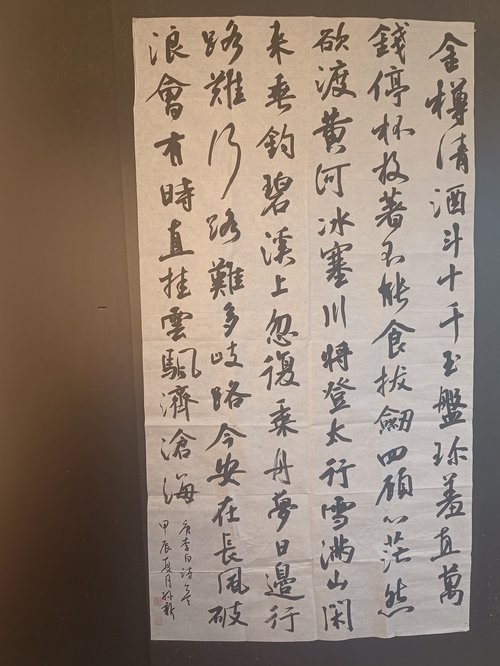 金樽清酒斗十千玉盤珎羞直萬
錢停杯投著不能食拔劒四顾心茫然
欲渡黄河冰塞川将登太行雪滿山閑
来垂釣碧溪上忽復乘舟夢日邊行
路難行路難多歧路今安在長風破
浪會有時直挂雲颿濟滄海
唐李白诗
甲辰夏月孙